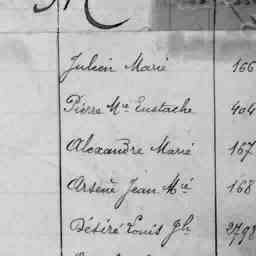 M
Julien Marié 166
Pierre Mie Eustache 404
Alexandre Marié 167
Arsené Jean Mié 168
Désiré Louis Jh 2798